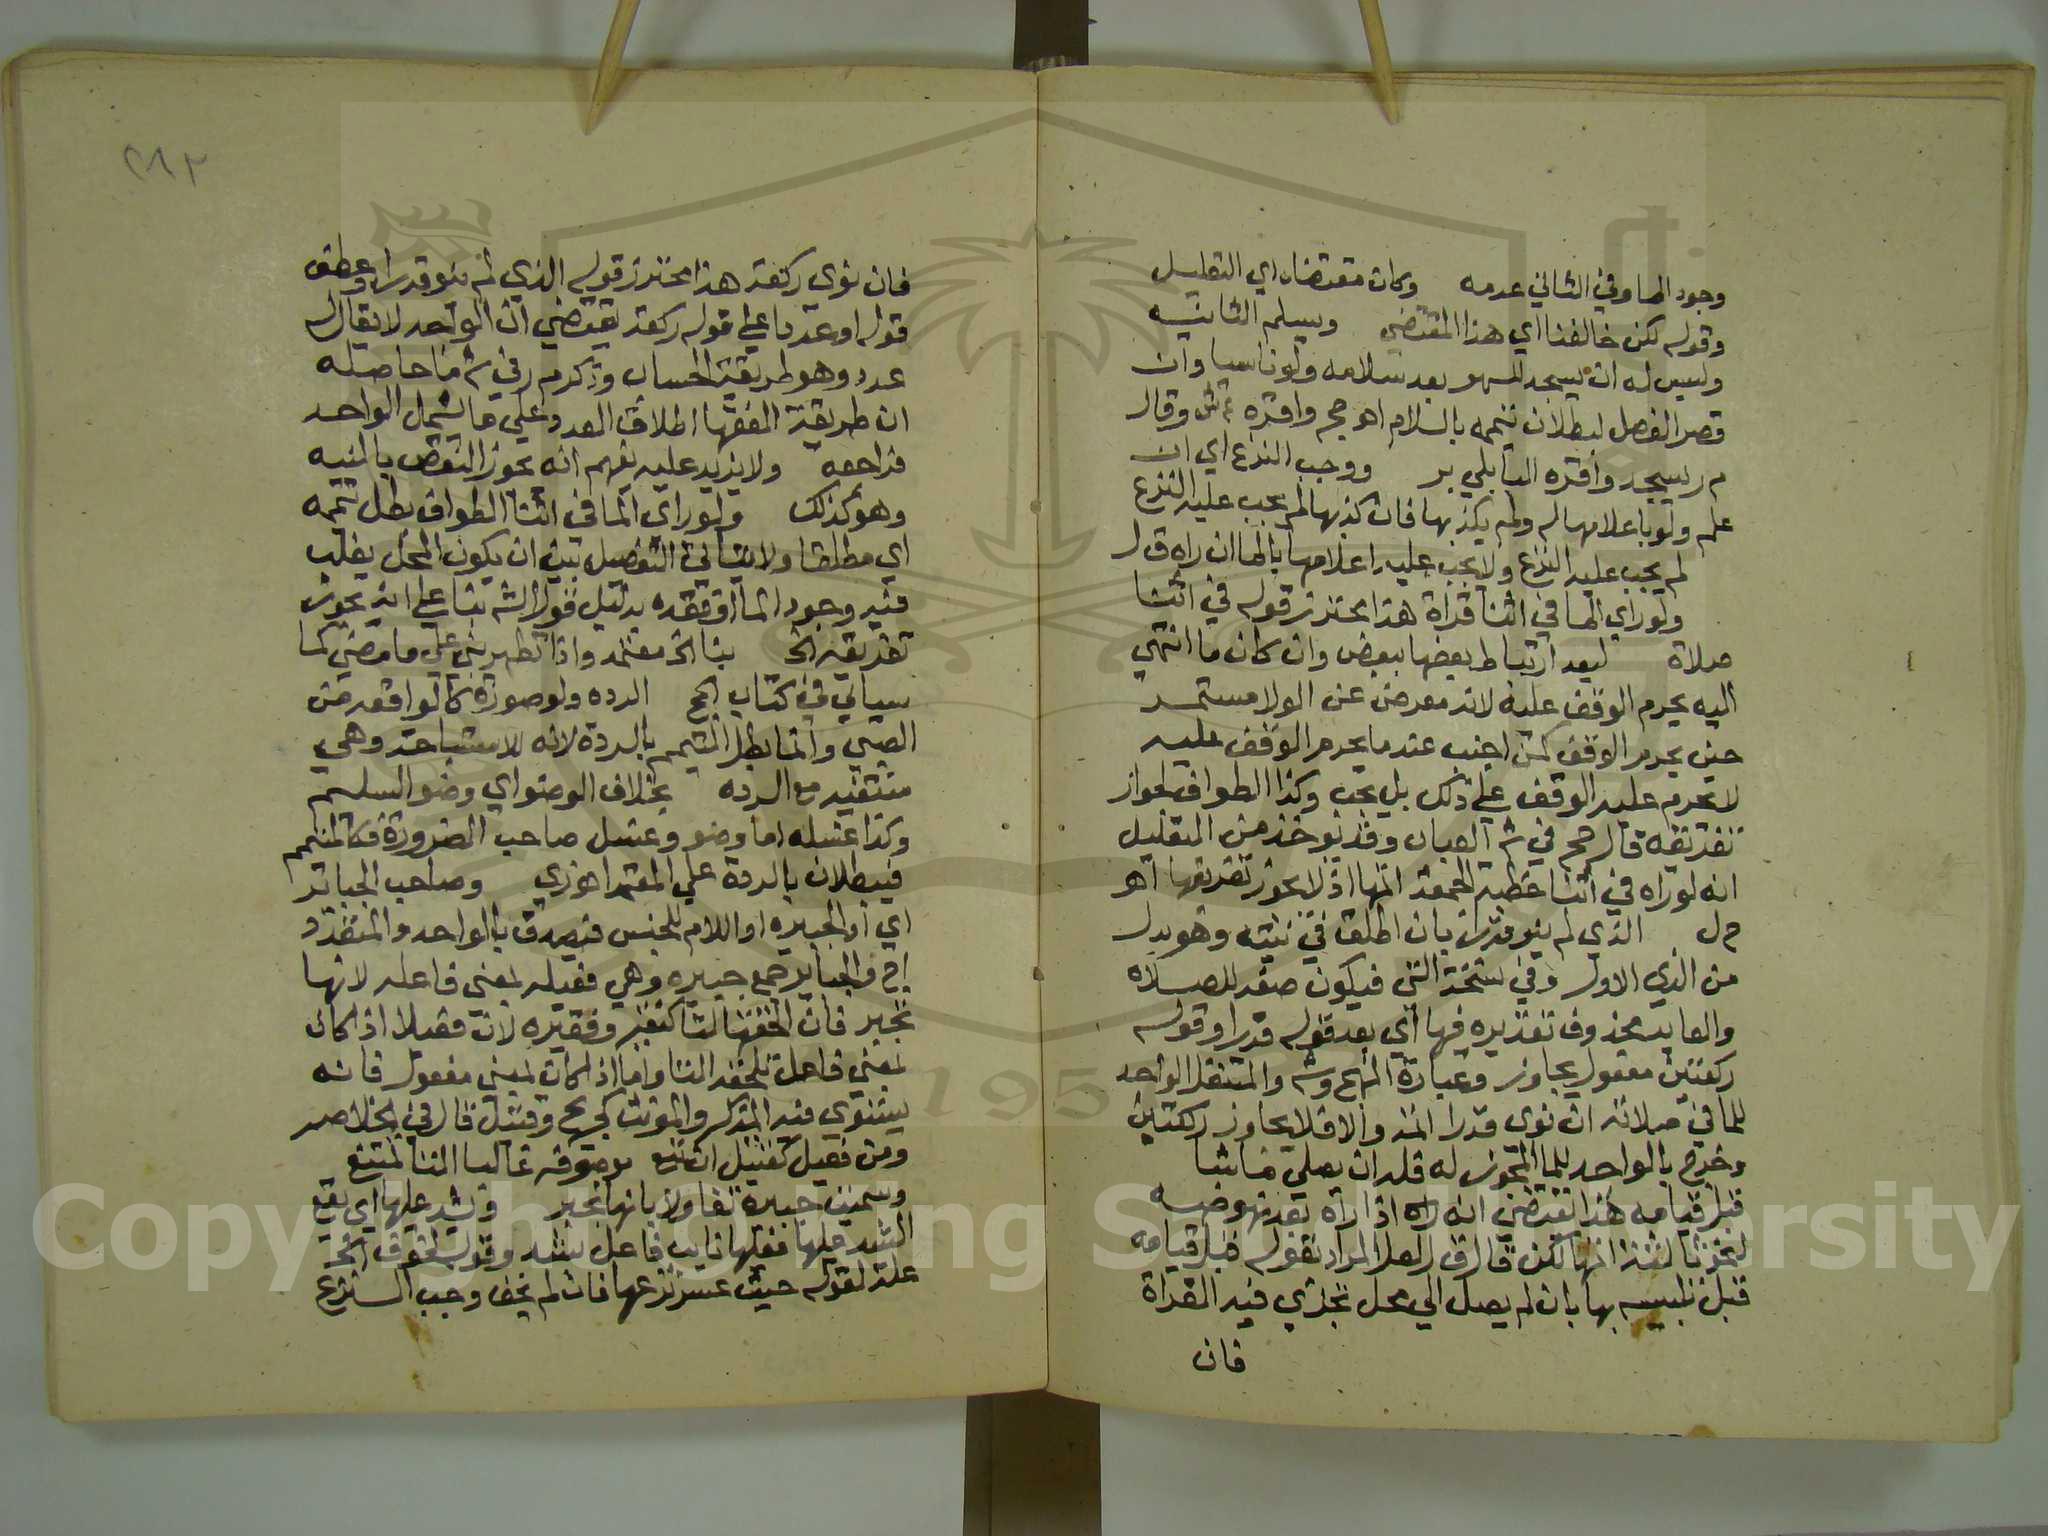 وجود الما وفي الثاني عدمه وكان مقتضاه اي التعليل
وقوله لكن خالفنا اي هذا المقتضي ويسلم الثانيه
وليس له ان يسجد للسهو بعد سلامه ولو ناسيا وان
قصر الفصل لبطلان تيممه بالسلام اهـ حج واقره وقال
م ر يسجد واقره البابلي بر ووجب النزع اي ان
علم ولو باعلامها له ولم يكذبها فان كذبها لم يجب عليه النزع
لم يجب عليه النزع ولا يجب عليه اعلامها بالما ان راه ق ل
ولو راي الما في اثنا قراة هذا محترز قوله في اثنا
صلاة لبعد ارتباط بعضها ببعض وان كان ما انتهي
اليه يحرم الوقف عليه لانه معرض عن الولا مستمر
حين يحرم الوقف كمن اجنب عند ما يحرم الوقف عليه
لا يحرم عليه الوقف علي ذلك بل يجب وكذا الطواف لجواز
تفريقه قال حج في ش العباب وقد يوخذ من التعليل
انه لو راه في اثنا خطبة الجمعة اتمها اذ لا يجوز تفريقها اهـ
ح ل الذي لم ينو قدرا بان اطلق في نيته وهو بدل
من الذي الاول وفي نسخة التي فيكون صفه للصلاة
والعايد محذوف تقديره فيها اي بعد قوله قدرا وقوله
ركعتين مفعول يجاوز وعبارة المنهج وش والمتنفل الواجد
للما في صلاته ان نوي قدرا اتمه والا فلا يجاوز ركعتين
وخرج بالواحد للما المجوز له فله ان يصلي ما شا
قبل قيامه هذا يقتضي انه اذا راه بعد نهوضه
لنحو ثالثة اتمها لكن قال ق ل لعل المراد بقوله قبل قيامه
قبل تلبسه بها بان لم يصل الي محل تجزي فيه القراة
فان
٢٨٢
فان نوي ركعة هذا محترز قوله الذي لم ينو قدرا وعطف
قوله او عددا علي قوله ركعة يقتضي ان الواحد لا يقال له
عدد وهو طريقة الحساب وذكر م ر في ش ما حاصله
ان طريقة الفقها اطلاق العدد علي ما يشمل الواحد
فراجعه ولا يزيد عليه يفهم انه يجوز النقص بالنيه
وهو كذلك ولو راي الما في اثنا الطواف بطل تيممه
اي مطلقا ولا يتاتي التفصيل بين ان يكون المحل يغلب
فيه وجود الما او فقده بدليل قول الش بنا علي انه يجوز
تفريقه الخ بنا الخ معتمد واذا تطهر بني علي ما مضي كما
سياتي في كتاب الحج الرده ولو صورة كالواقعه من
الصبي وانما بطل التيمم بالردة لانه للاستباحة وهي
منتفيه مع الرده بخلاف الوضو اي وضو السليم
وكذا غسله اما وضو وغسل صاحب الضرورة فكالتيمم
فيبطلان بالردة علي المعتمد اجهوري وصاحب الجباير
اي او الجبيره او اللام للجنس فيصدق بالواحد والمتعدد
ا ج والجباير جمع جبيره وهي فعيله بمعني فاعله لانها
تجبر فان الحقتها التا كفقير وفقيره لان فعيلا اذا كان
بمعني فاعل تلحقه التا واما اذا كان بمعني مفعول فانه
يستوي فيه المذكر والمونث كجريح وقتيل قال في الخلاصه
ومن فعيل كقتيل ان تبع موصوفه غالبا التا تمتنع
وسميت جبيرة تفاولا بانها تجبر وتشد عليها اي يقع
الشد عليها فعليها نايب فاعل تشد وقوله لخوف الخ
علة لقوله حيث عسر نزعها فان لم يخف وجب النزع